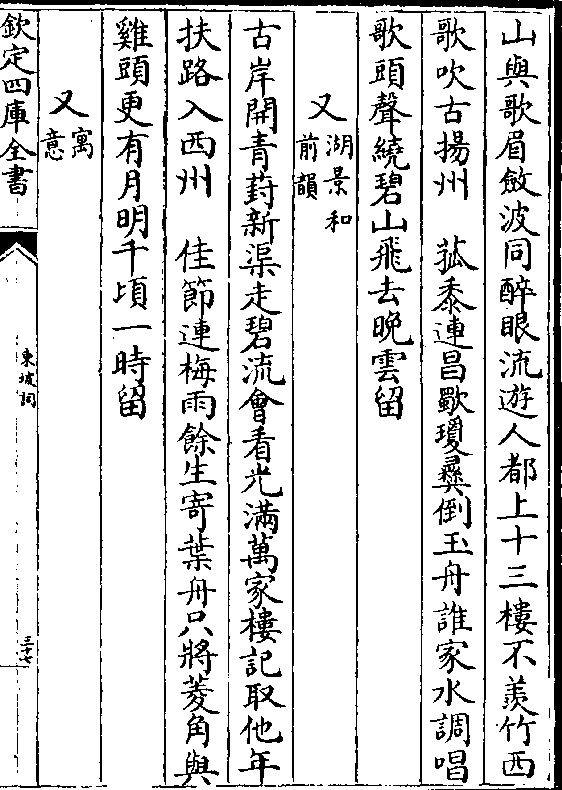 山與歌眉斂波同醉眼流遊人都上十三樓不羨竹西
歌吹古揚州　菰黍連昌歜瓊彝倒玉舟誰家水調唱
歌頭聲繞碧山飛去晚雲留
又湖景和前韻
古岸開青葑新渠走碧流會看光滿萬家樓記取他年
扶路入西州　佳節連梅雨餘生寄葉舟只將菱角與
雞頭更有月明千頃一時留
又寓意
欽定四庫全書
東坡詞
三十七